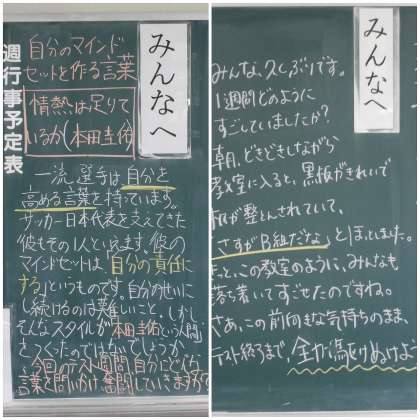 週行事予定表
みんなへ
自分のマインド
セットを作る言葉
情熱は足りて
いるか(本田圭佑)
一流選手は自分を
高める言葉を持っています。
サッカー日本代表を支えてきた
彼もその1人といえます。彼の
マインドセットは「自分の責任に
する」というものです。自分のせいに
し続けるのは難しいこと。しかし
そんなスタイルが本田圭佑という人間
をつくったのではないでしょうか。
今回のテスト週間、自分にどんな
言葉を問いかけ奮闘していきますか?
みんなへ
みんな、久しぶりです。
1週間どのように
すごしていましたか?
朝、どきどきしながら
教室に入ると、黒板がきれいで
机が整とんされていて、
「さすがB組だな」とほっとしました。
きっと、この教室のように、みんなも
落ち着いてすごせたのですね。
さあ、この前向きな気持ちのまま、
テスト終了まで、全力で駆けぬけよう